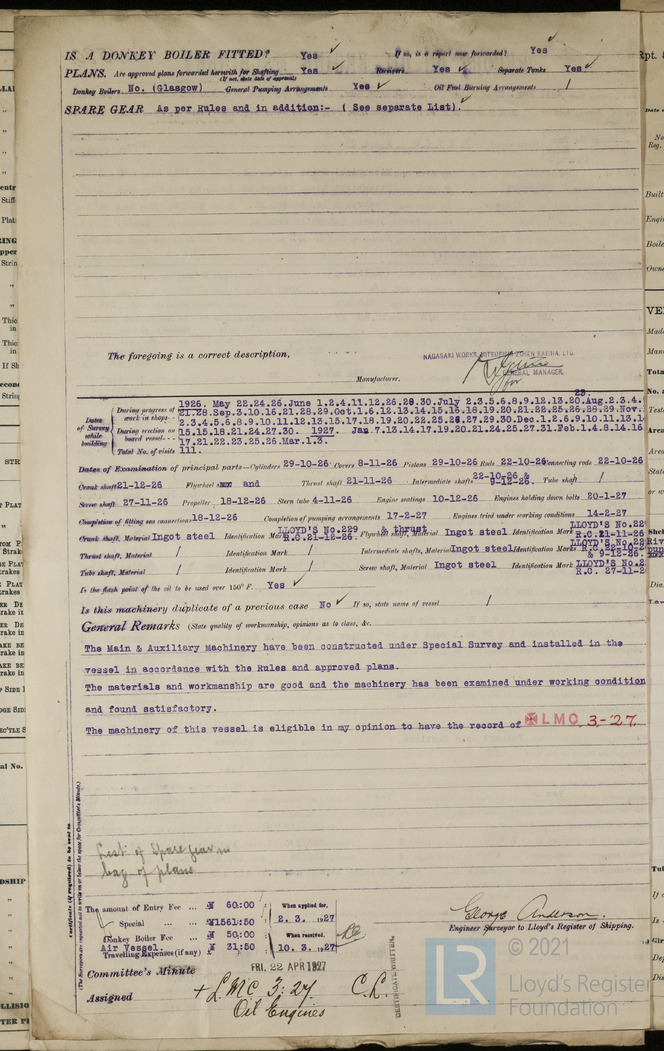 IS A DONKEY BOILER FITTED? Yes ✓ If so, is a report now forwarded? Yes ✓
PLANS. Are approved plans forwarded herewith for Shafting Yes ✓ Receivers Yes ✓ Separate Tanks Yes ✓
(If not, state date of approval)
Donkey Boilers No. (Glasgow) General Pumping Arrangements Yes ✓ Oil Fuel Burning Arrangements /
SPARE GEAR As per Rules and in addition:- ( See separate List). ✓
The foregoing is a correct description,
NAGASAKI WORKS, MITSUBISHI ZOSEN KAISHA, LTD.
GENERAL MANAGER.
for
Manufacturer.
Dates of Survey while building
During progress of work in shops - -
1926. May 22.24.26.June 1.2.4.11.12.26.28.30.July 2.3.5.6.8.9.12.13.20.23.Aug.2.3.4.
21.28.Sep.3.10.16.21.28.29.Oct.1.6.12.13.14.15.16.18.19.20.21.22.25.26.28.29.Nov.
2.3.4.5.6.8.9.10.11.12.13.15.17.18.19.20.22.25.26.27.29.30.Dec.1.2.6.9.10.11.13.1
During erection on board vessel - - -
15.15.18.21.24.27.30. 1927. Jan 7.13.14.17.19.20.21.24.25.27.31.Feb.1.4.8.14.16
17.21.22.23.25.26.Mar.1.3.
Total No. of visits 111.
Dates of Examination of principal parts—Cylinders 29-10-26 Covers 8-11-26 Pistons 29-10-26 Rods 22-10-26 Connecting rods 22-10-26
Crank shaft 21-12-26 Flywheel and Thrust shaft 21-11-26 Intermediate shafts 22-10-26 & 9-12-26. Tube shaft /
Screw shaft 27-11-26 Propeller 18-12-26 Stern tube 4-11-26 Engine seatings 10-12-26 Engines holding down bolts 20-1-27
Completion of fitting sea connections 18-12-26 Completion of pumping arrangements 17-2-27 Engines tried under working conditions 14-2-27
Crank shaft, Material Ingot steel Identification Mark LLOYD'S No.229 R.C.21-12-26. Flywheel shaft, & thrust Material Ingot steel Identification Mark LLOYD'S No.22 R.C.21-11-26
Thrust shaft, Material / Identification Mark / Intermediate shafts, Material Ingot steel Identification Mark LLOYD'S No.22 R.C.22-10-2 & 9-12-26.
Tube shaft, Material / Identification Mark / Screw shaft, Material Ingot steel Identification Mark LLOYD'S No.2 R.C. 27-11-2
Is the flash point of the oil to be used over 150° F. Yes ✓
Is this machinery duplicate of a previous case No ✓ If so, state name of vessel /
General Remarks (State quality of workmanship, opinions as to class, &c.
The Main & Auxiliary Machinery have been constructed under Special Survey and installed in the
vessel in accordance with the Rules and approved plans.
The materials and workmanship are good and the machinery has been examined under working condition
and found satisfactory.
The machinery of this vessel is eligible in my opinion to have the record of ✠ LMC 3-'27.
List of Spare gear in
bag of plans
Certificate (if required) to be sent to
(The Surveyors are requested not to write on or below the space for Committee's Minute.)
The amount of Entry Fee ... ¥ 60:00 When applied for,
Special ... ... ¥1561:50 2. 3. 1927
Donkey Boiler Fee ... ¥ 50:00 When received,
Air Vessel.
Travelling Expenses (if any) ¥ 31:50 10. 3. 1927
George Anderson.
Engineer Surveyor to Lloyd's Register of Shipping.
Committee's Minute FRI. 22 APR 1927
Assigned + LMC 3:27 C.L.
Oil Engines
CERTIFICATE WRITTEN.
LR © 2021
Lloyd's Register
Foundation